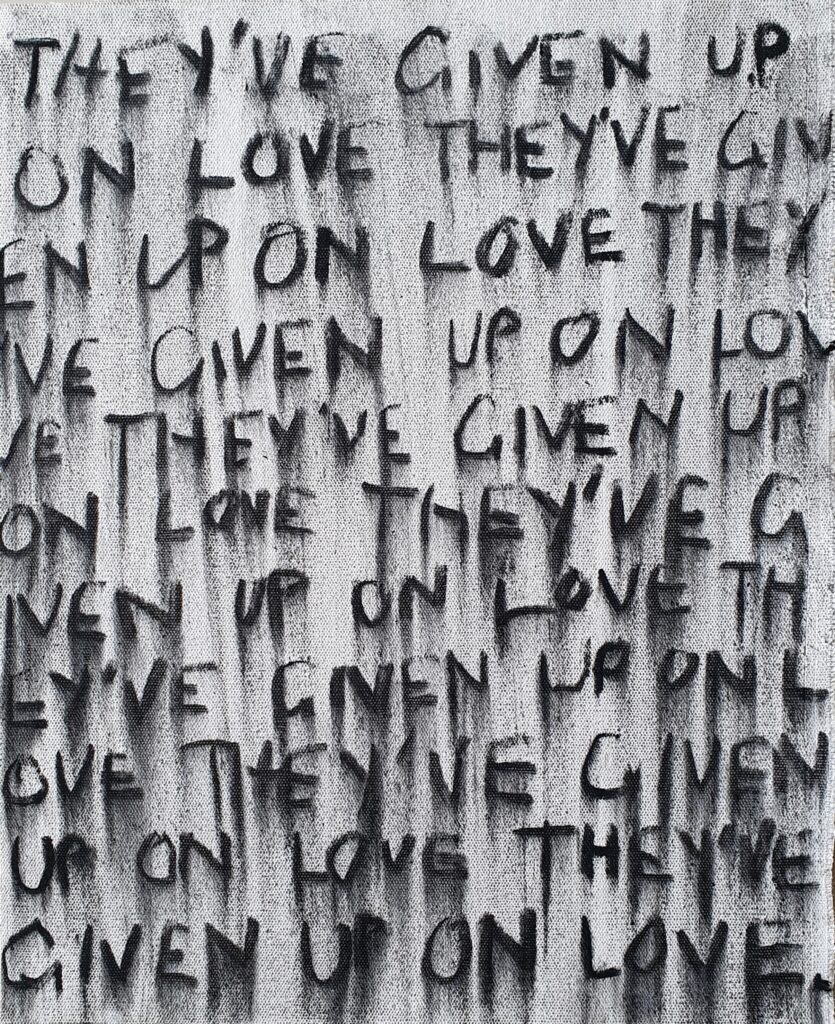 THEY'VE GIVEN UP
ON LOVE THEY'VE GIV
EN UP ON LOVE THEY
'VE GIVEN UP ON LOV
VE THEY'VE GIVEN UP
ON LOVE THEY'VE G
IVEN UP ON LOVE TH
EY'VE GIVEN UP ON L
OVE THEY'VE GIVEN
UP ON LOVE THEY'VE
GIVEN UP ON LOVE.